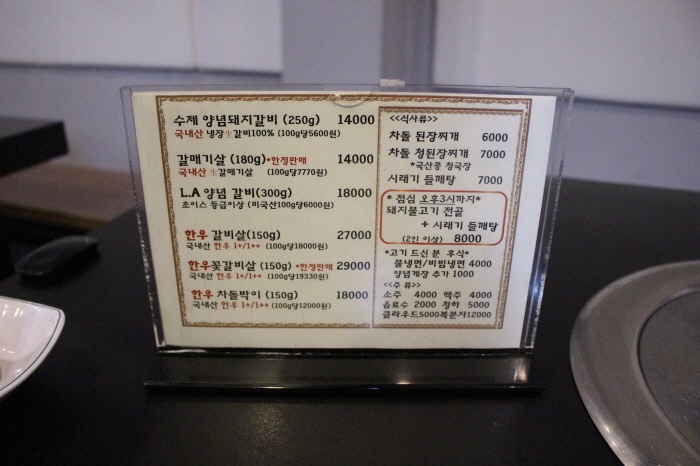 수제 양념돼지갈비 (250g) 14000
국내산 냉장生갈비100% (100g당5600원)
갈매기살 (180g)*한정판매 14000
국내산 生갈매기살 (100g당7770원)
L.A 양념 갈비(300g) 18000
초이스 등급이상 (미국산100g당6000원)
한우 갈비살(150g) 27000
국내산 한우 1+/1++ (100g당18000원)
한우꽃갈비살 (150g) *한정판매 29000
국내산 한우 1+/1++ (100g당19330원)
한우 차돌박이 (150g) 18000
국내산 한우 1+/1++ (100g당12000원)
<<식사류>>
차돌 된장찌개 6000
차돌 청된장찌개 7000
*국산콩 청국장
시래기 들깨탕 7000
* 점심 오후3시까지*
돼지불고기 전골
+ 시래기 들깨탕
(2인 이상) 8000
*고기 드신 분 후식*
물냉면/비빔냉면 4000
양념게장 추가 1000
<<주 류>>
소주 4000 맥주 4000
음료수 2000 청하 5000
클라우드5000복분자12000